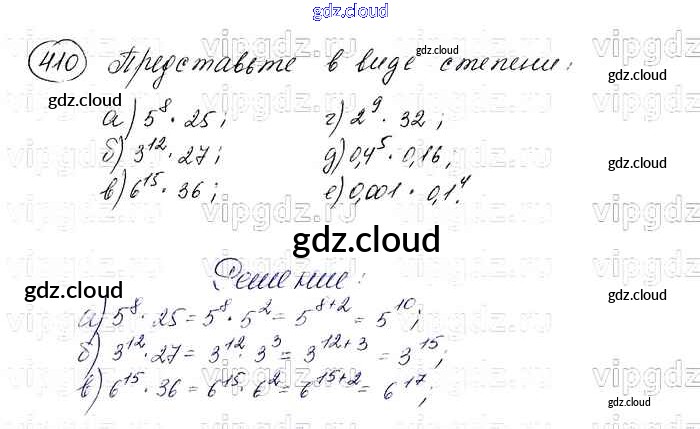 gdz.cloud
410 Представьте в виде степени:
gdz.cloud
gdz.cloud
а) 5⁸ · 25; г) 2⁹ · 32;
б) 3¹² · 27; д) 0,4⁵ · 0,16;
в) 6¹⁵ · 36; е) 0,001 · 0,1⁴.
gdz.cloud
gdz.cloud
gdz.cloud
Решение:
gdz.cloud
gdz.cloud
а) 5⁸ · 25 = 5⁸ · 5² = 5⁸⁺² = 5¹⁰;
б) 3¹² · 27 = 3¹² · 3³ = 3¹²⁺³ = 3¹⁵;
в) 6¹⁵ · 36 = 6¹⁵ · 6² = 6¹⁵⁺² = 6¹⁷;
gdz.cloud